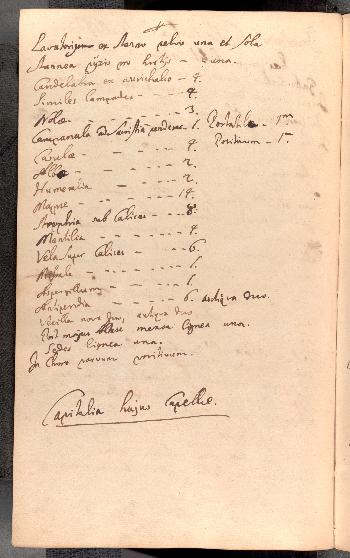 Lavatorium ex stanno pelvis una et sola
Stannea pixis pro hostijs - una.
Candelabra ex aurichalco - 4.
Similes Lampades - - - 4.
Nolae - - - - 3.
Campanula ad Sacristiam pendens. 1. Portatile - 1m
Casulae - - - - 4. - 1.
Albae - - - - 2.
Humeralia - - - 2.
Mappae - - - - 14.
sub Calices - - 8.
Mantilia - - - - 4.
Vela super Calices - - 6.
- - - - 1.
Aspersillum - - - 1.
Antipendia - - - - 6. antiqua duo.
Vexilla nova duo, antiqua duo
Post majus Altare mensa lignea una.
Sedes lignea una.
In Choro parvum positivum.
Capitalia hujus Capellae.